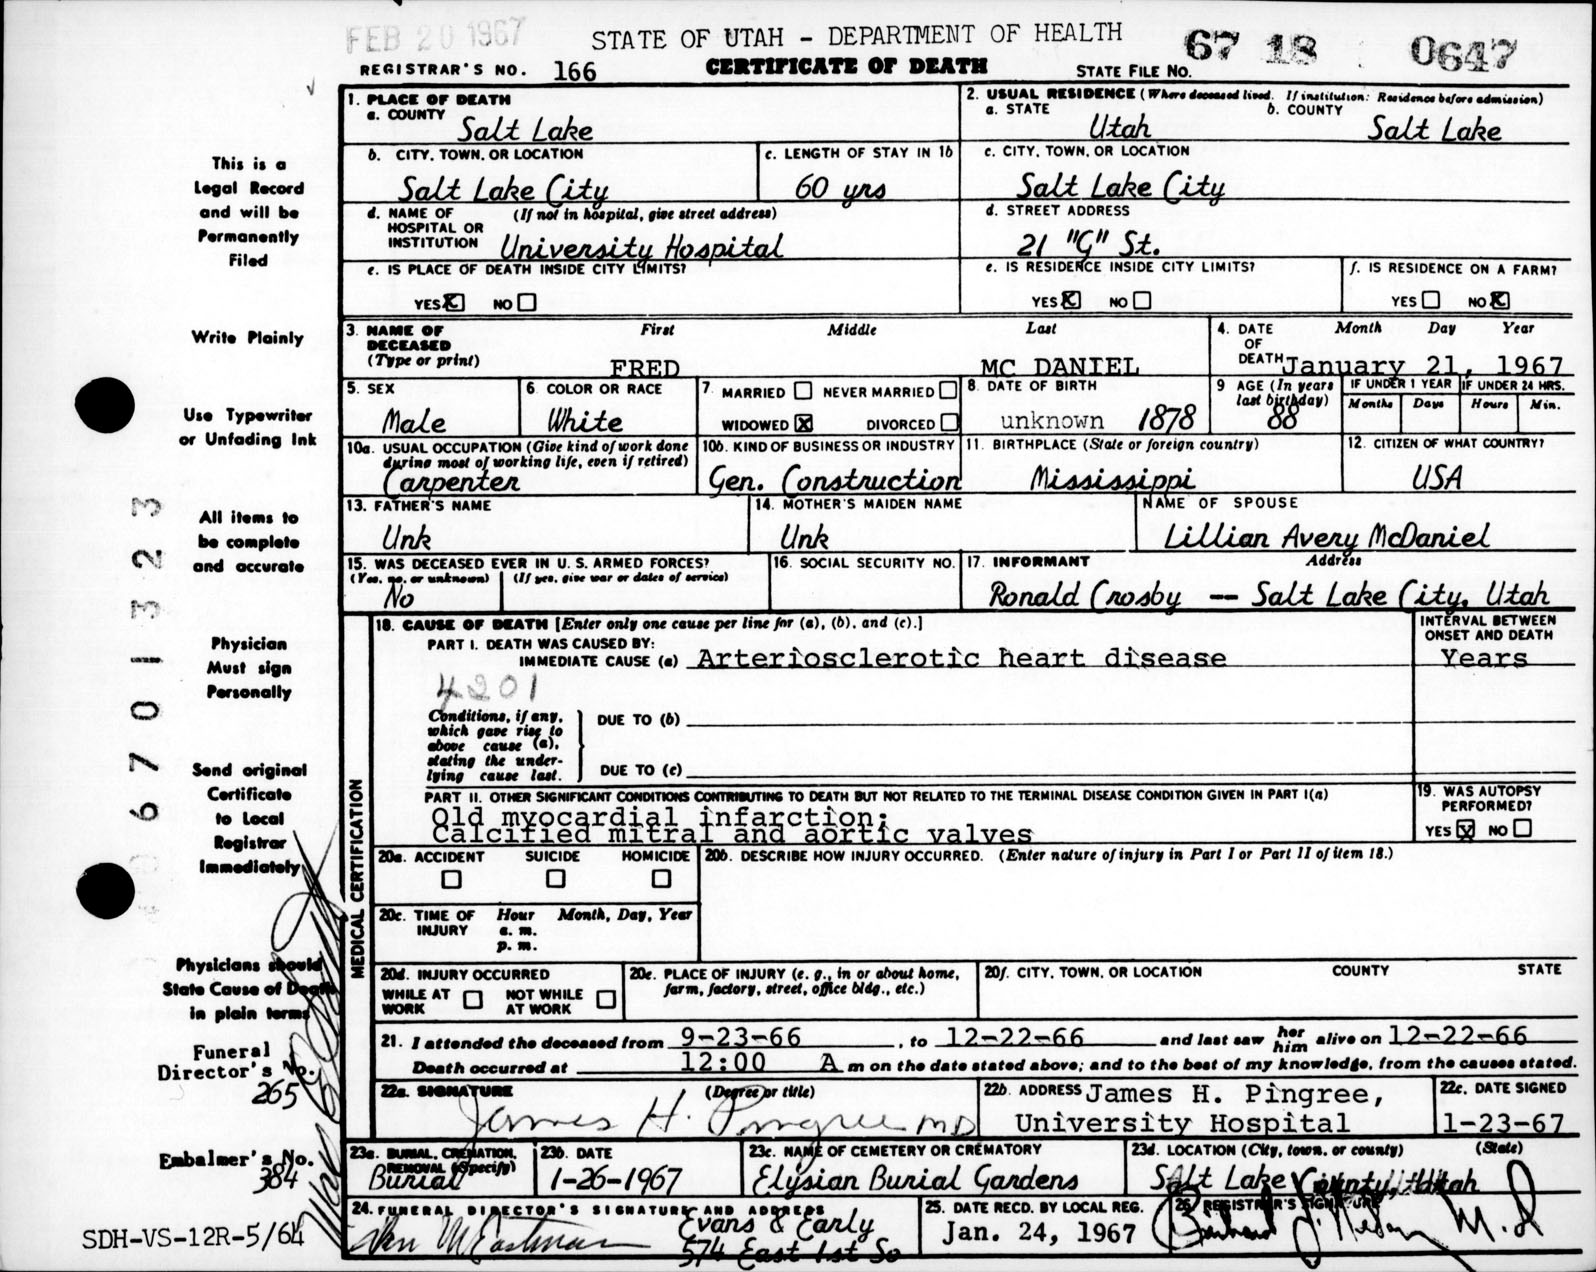 FEB 20 1967
STATE OF UTAH - DEPARTMENT OF HEALTH
67 18 0647
REGISTRAR'S NO. 166
CERTIFICATE OF DEATH
STATE FILE NO.
This is a
Legal Record
and will be
Permanently
Filed
Write Plainly
Use Typewriter
or Unfading Ink
All items to
be complete
and accurate
Physician
Must sign
Personally
Send original
Certificate
to Local
Registrar
Immediately
Physicians should
State Cause of Death
in plain terms
Funeral
Director's No.
265
Embalmer's No.
384
SDH-VS-12R-5/64
6701323
1. PLACE OF DEATH
a. COUNTY
Salt Lake
2. USUAL RESIDENCE (Where deceased lived. If institution: Residence before admission)
a. STATE b. COUNTY
Utah Salt Lake
b. CITY, TOWN, OR LOCATION
Salt Lake City
c. LENGTH OF STAY IN 1b
60 yrs
c. CITY, TOWN, OR LOCATION
Salt Lake City
d. NAME OF (If not in hospital, give street address)
HOSPITAL OR
INSTITUTION University Hospital
d. STREET ADDRESS
21 "G" St.
e. IS PLACE OF DEATH INSIDE CITY LIMITS?
YES X NO
e. IS RESIDENCE INSIDE CITY LIMITS?
YES X NO
f. IS RESIDENCE ON A FARM?
YES NO X
3. NAME OF First Middle Last
DECEASED
(Type or print)
FRED MC DANIEL
4. DATE Month Day Year
OF
DEATH January 21, 1967
5. SEX
Male
6. COLOR OR RACE
White
7. MARRIED NEVER MARRIED
WIDOWED X DIVORCED
8. DATE OF BIRTH
unknown 1878
9 AGE (In years
last birthday)
88
IF UNDER 1 YEAR
Months Days
IF UNDER 24 HRS.
Hours Min.
10a. USUAL OCCUPATION (Give kind of work done
during most of working life, even if retired)
Carpenter
10b. KIND OF BUSINESS OR INDUSTRY
Gen. Construction
11. BIRTHPLACE (State or foreign country)
Mississippi
12. CITIZEN OF WHAT COUNTRY?
USA
13. FATHER'S NAME
Unk
14. MOTHER'S MAIDEN NAME
Unk
NAME OF SPOUSE
Lillian Avery McDaniel
15. WAS DECEASED EVER IN U. S. ARMED FORCES?
(Yes, no, or unknown) (If yes, give war or dates of service)
No
16. SOCIAL SECURITY NO.
17. INFORMANT Address
Ronald Crosby -- Salt Lake City, Utah
MEDICAL CERTIFICATION
18. CAUSE OF DEATH [Enter only one cause per line for (a), (b), and (c).]
PART I. DEATH WAS CAUSED BY:
IMMEDIATE CAUSE (a) Arteriosclerotic heart disease
INTERVAL BETWEEN
ONSET AND DEATH
Years
4201
Conditions, if any,
which gave rise to
above cause (a),
stating the under-
lying cause last.
DUE TO (b)
DUE TO (c)
PART II. OTHER SIGNIFICANT CONDITIONS CONTRIBUTING TO DEATH BUT NOT RELATED TO THE TERMINAL DISEASE CONDITION GIVEN IN PART I(a)
Old myocardial infarction;
Calcified mitral and aortic valves
19. WAS AUTOPSY
PERFORMED?
YES X NO
20a. ACCIDENT SUICIDE HOMICIDE
20b. DESCRIBE HOW INJURY OCCURRED. (Enter nature of injury in Part I or Part II of item 18.)
20c. TIME OF Hour Month, Day, Year
INJURY a. m.
p. m.
20d. INJURY OCCURRED
WHILE AT NOT WHILE
WORK AT WORK
20e. PLACE OF INJURY (e. g., in or about home,
farm, factory, street, office bldg., etc.)
20f. CITY, TOWN, OR LOCATION COUNTY STATE
21. I attended the deceased from 9-23-66, to 12-22-66 and last saw her him alive on 12-22-66
Death occurred at 12:00 A m on the date stated above; and to the best of my knowledge, from the causes stated.
22a. SIGNATURE (Degree or title)
James H. Pingree MD
22b. ADDRESS James H. Pingree,
University Hospital
22c. DATE SIGNED
1-23-67
23a. BURIAL, CREMATION,
REMOVAL (Specify)
Burial
23b. DATE
1-26-1967
23c. NAME OF CEMETERY OR CREMATORY
Elysian Burial Gardens
23d. LOCATION (City, town, or county) (State)
Salt Lake County, Utah
24. FUNERAL DIRECTOR'S SIGNATURE AND ADDRESS
Evans & Early
574 East 1st So
25. DATE RECD. BY LOCAL REG.
Jan. 24, 1967
26 REGISTRAR'S SIGNATURE
M.D